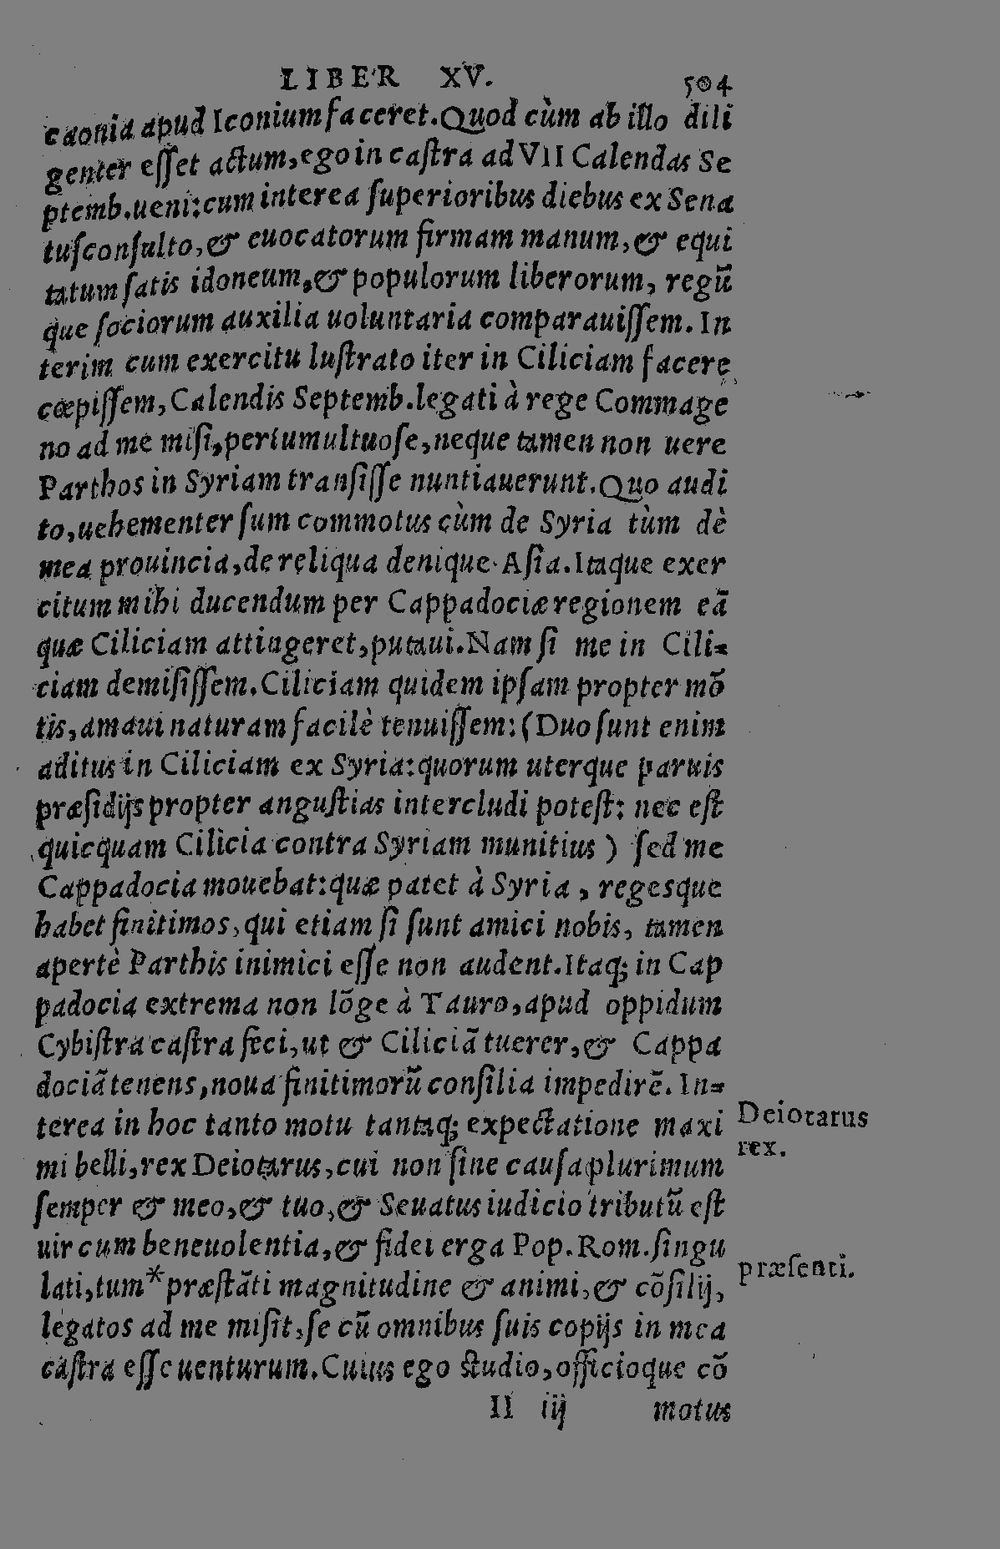 LIBER XV. 504
caonia apud Iconium faceret. Quod cùm ab illo dili
genter eſſet actum, ego in caſtra ad VII Calendas Se
ptemb. ueni: cum interea ſuperioribus diebus ex Sena
tuſconſulto, & euocatorum firmam manum, & equi
tatum ſatis idoneum, & populorum liberorum, regū
que ſociorum auxilia uoluntaria comparauiſſem. In
terim cum exercitu luſtrato iter in Ciliciam facere
cœpiſſem, Calendis Septemb. legati à rege Commage
no ad me miſi, pertumultuoſe, neque tamen non uere
Parthos in Syriam tranſiſſe nuntiauerunt. Quo audi
to, uehementer ſum commotus cùm de Syria tùm dè
mea prouincia, de reliqua denique Aſia. Itaque exer
citum mihi ducendum per Cappadociæ regionem eā
quæ Ciliciam attingeret, putaui. Nam ſi me in Cili-
ciam demiſiſſem. Ciliciam quidem ipſam propter mō
tis, amaui naturam facilè tenuiſſem: (Duo ſunt enim
aditus in Ciliciam ex Syria: quorum uterque paruis
præſidijs propter anguſtias intercludi poteſt: nec eſt
quicquam Cilicia contra Syriam munitius) ſed me
Cappadocia mouebat: quæ patet à Syria, regesque
habet finitimos, qui etiam ſi ſunt amici nobis, tamen
apertè Parthis inimici eſſe non audent. Itaq; in Cap
padocia extrema non lōge à Tauro, apud oppidum
Cybiſtra caſtra feci, ut & Ciliciā tuerer, & Cappa
dociā tenens, noua finitimorū conſilia impedirē. In-
terea in hoc tanto motu tantaq; expectatione maxi
mi belli, rex Deiotarus, cui non ſine cauſa plurimum
ſemper & meo, & tuo, & Seuatus iudicio tributū eſt
uir cum beneuolentia, & fidei erga Pop. Rom. ſingu
lati, tum* præſtāti magnitudine & animi, & cōſilij,
legatos ad me miſit, ſe cū omnibus ſuis copijs in mea
caſtra eſſe uenturum. Cuius ego ſtudio, officioque cō
II iij motus
Deiotarus
rex.
præſenti.